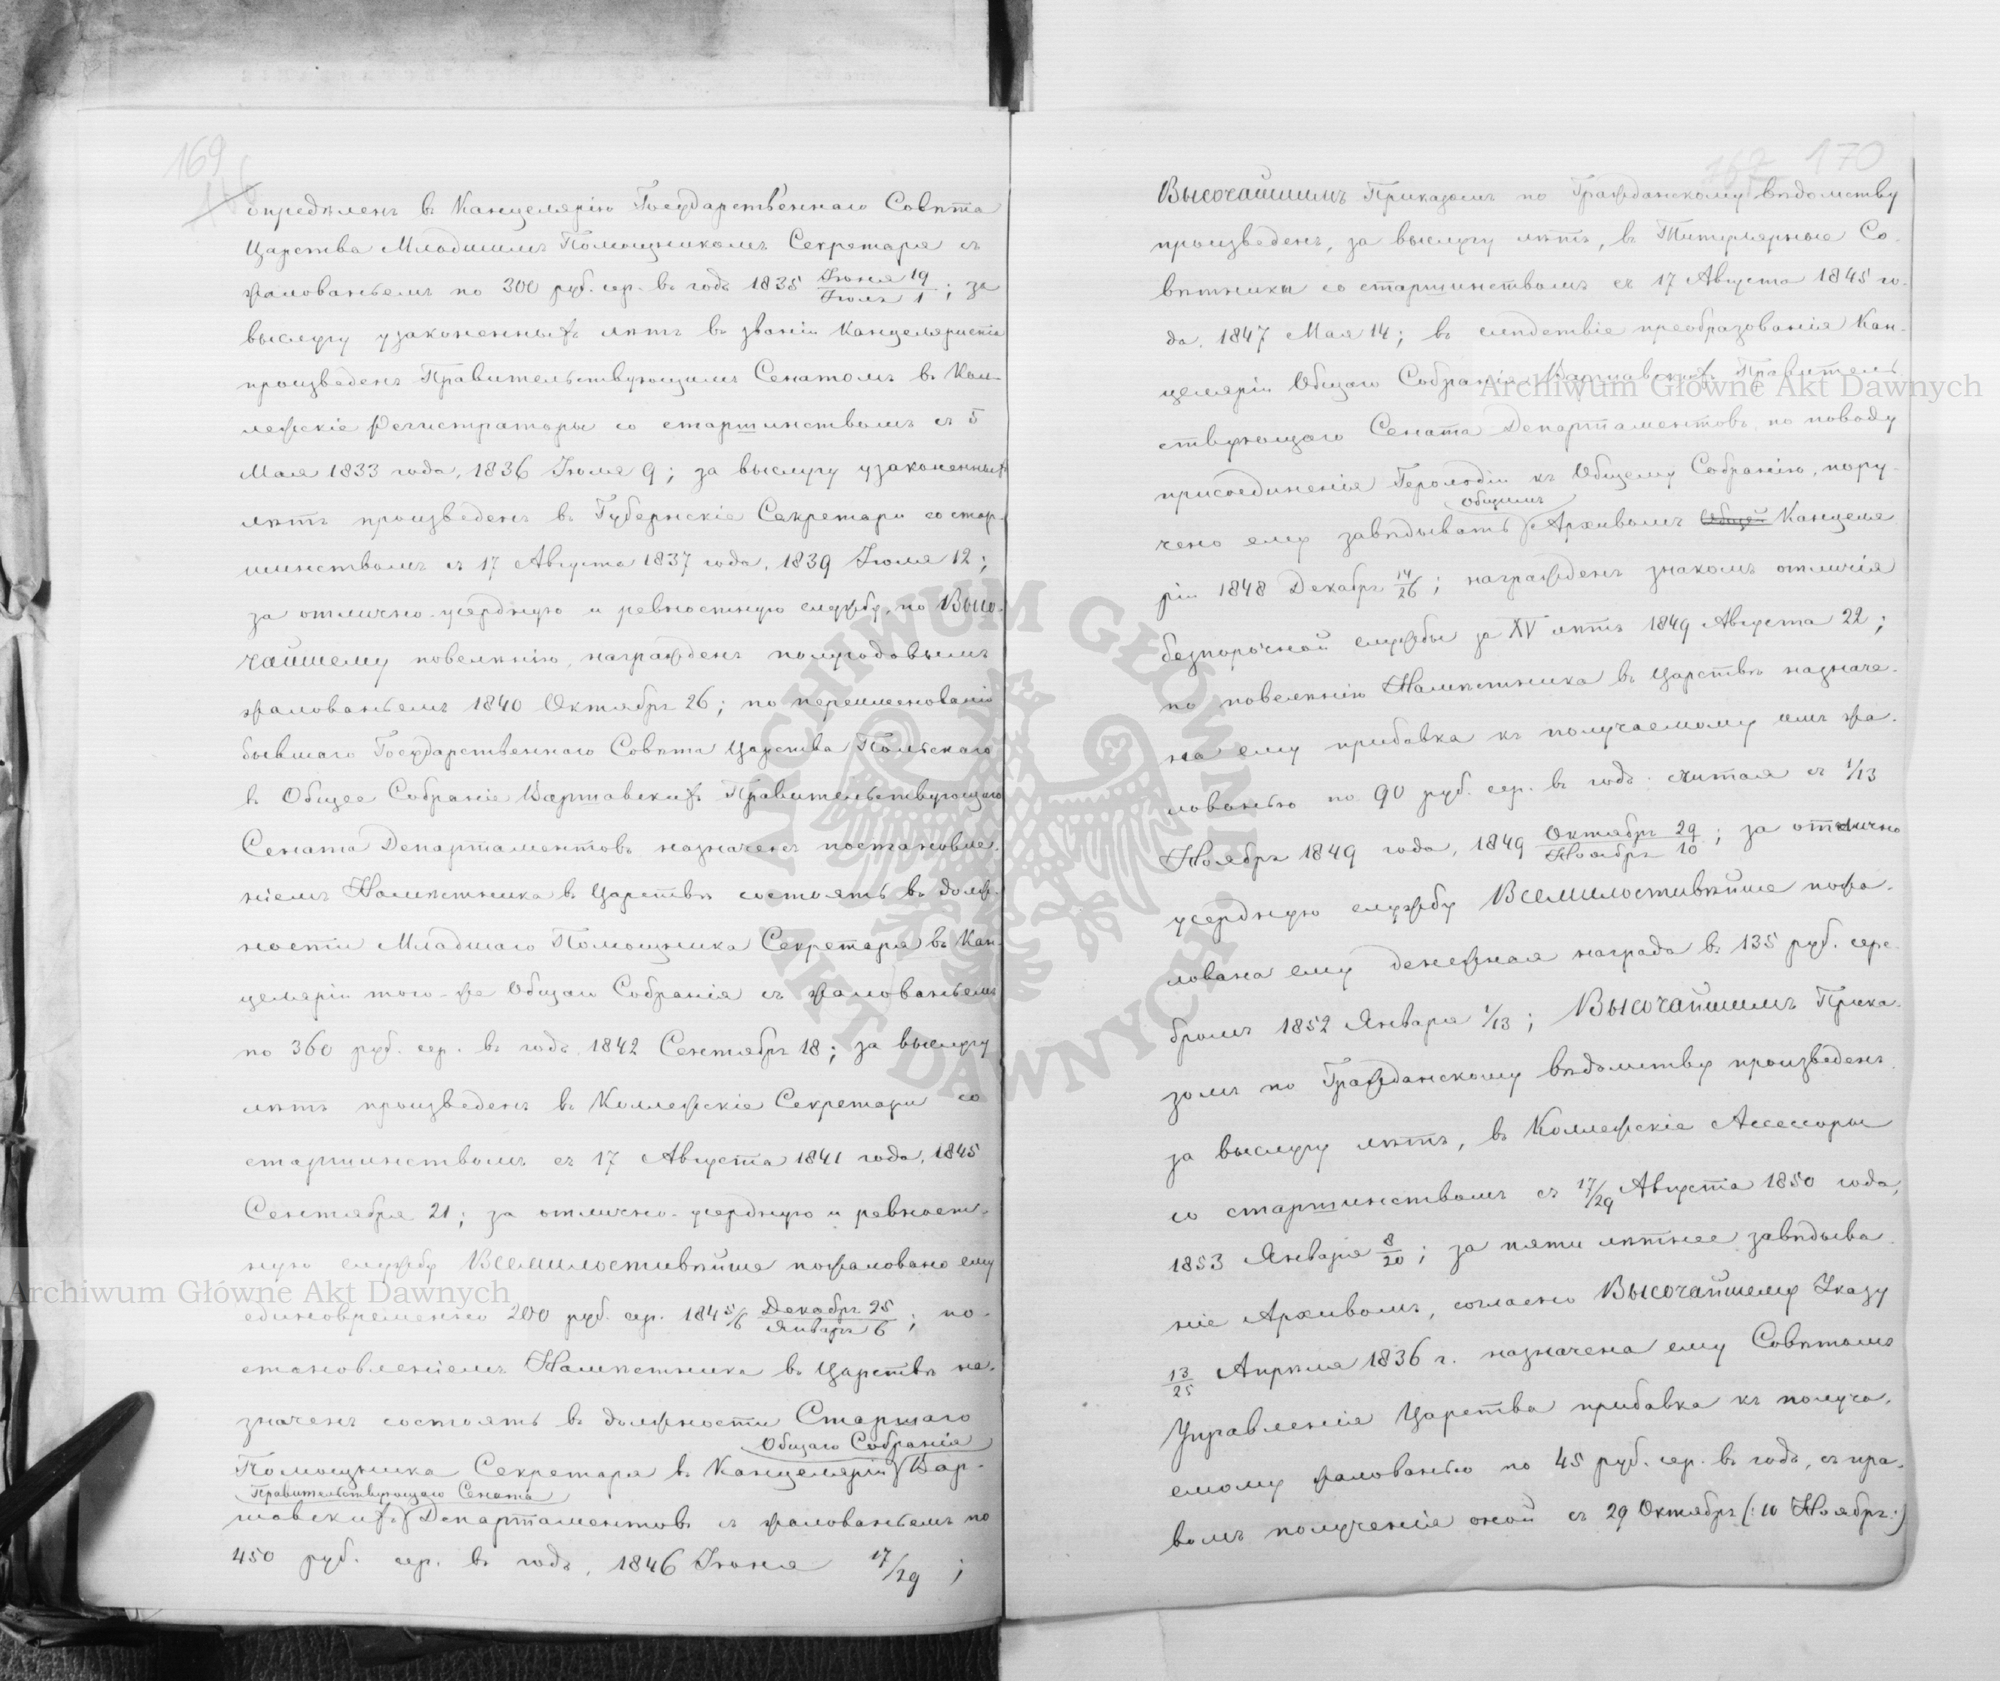 169
166
опредѣленъ въ Канцелярію Государственнаго Совѣта
Царства Младшимъ Помощникомъ Секретаря съ
жалованьемъ по 300 руб. сер. въ годъ 1835 Іюня 19 / Іюль 1 ; за
выслугу узаконенныхъ лѣтъ въ званіи Канцелярскаго
произведенъ Правительствующимъ Сенатомъ въ Кол-
лежскіе Регистраторы со старшинствомъ съ 5
Мая 1833 года, 1836 Іюля 9; за выслугу узаконенныхъ
лѣтъ произведенъ въ Губернскіе Секретари со стар-
шинствомъ съ 17 Августа 1837 года, 1839 Іюля 12;
за отлично-усердную и ревностную службу, по Высо-
чайшему повелѣнію, награжденъ полугодовымъ
жалованьемъ 1840 Октябръ 26; по переименованіи
бывшаго Государственнаго Совѣта Царства Польскаго
въ Общее Собраніе Варшавскихъ Правительствующаго
Сената Департаментовъ назначенъ постановле-
ніемъ Намѣстника въ Царствѣ состоять въ долж-
ности Младшаго Помощника Секретаря въ Кан-
целяріи того-же Общаго Собранія съ жалованьемъ
по 360 руб. сер. въ годъ 1842 Сентябръ 18; за выслугу
лѣтъ произведенъ въ Коллежскіе Секретари со
старшинствомъ съ 17 Августа 1841 года, 1845
Сентября 21; за отлично-усердную и ревност-
ную службу Всемилостивѣйше пожаловано ему
единовременно 200 руб. сер. 1845/6 Декабръ 25 / Январъ 6 ; по-
становленіемъ Намѣстника въ Царствѣ на-
значенъ состоять въ должности Старшаго
Общаго Собранія
Помощника Секретаря въ Канцеляріи Вар-
Правительствующаго Сената
шавскихъ Департаментовъ съ жалованьемъ по
450 руб. сер. въ годъ, 1846 Іюня 17/29 ;
167 170
Высочайшимъ Приказомъ по Гражданскому вѣдомству
произведенъ, за выслугу лѣтъ, въ Титулярные Со-
вѣтники со старшинствомъ съ 17 Августа 1845 го-
да, 1847 Мая 14; въ слѣдствіе преобразованія Кан-
целяріи Общаго Собранія Варшавскихъ Правитель-
ствующаго Сената Департаментовъ, по поводу
присоединенія Герольдіи къ Общему Собранію, пору-
Общимъ
чено ему завѣдывать Архивомъ Общей Канцеля
ріи 1848 Декабръ 14/26 ; награжденъ знакомъ отличія
безпорочной службы за XV лѣтъ 1849 Августа 22;
по повелѣнію Намѣстника въ Царствѣ назначе-
на ему прибавка къ получаемому имъ жа-
лованью по 90 руб. сер. въ годъ считая съ 1/13
Ноябръ 1849 года, 1849 Октябръ 29 / Ноябръ 10 ; за отлично
усердную службу Всемилостивѣйше пожа-
лована ему денежная награда въ 135 руб. сере-
бромъ 1852 Января 1/13 ; Высочайшимъ Прика-
зомъ по Гражданскому вѣдомству произведенъ
за выслугу лѣтъ, въ Коллежскіе Ассесоры
со старшинствомъ съ 17/29 Августа 1850 года,
1853 Января 8/20 ; за пяти лѣтнее завѣдыва-
ніе Архивомъ, согласно Высочайшему Указу
13/25 Апрѣля 1836 г. назначена ему Совѣтомъ
Управленія Царства прибавка къ получа-
емому жалованью по 45 руб. сер. въ годъ, съ пра-
вомъ полученія оной съ 29 Октябръ (: 10 Ноябръ :)
Archiwum Główne Akt Dawnych
Archiwum Główne Akt Dawnych
ARCHIWUM GŁÓWNE AKT DAWNYCH